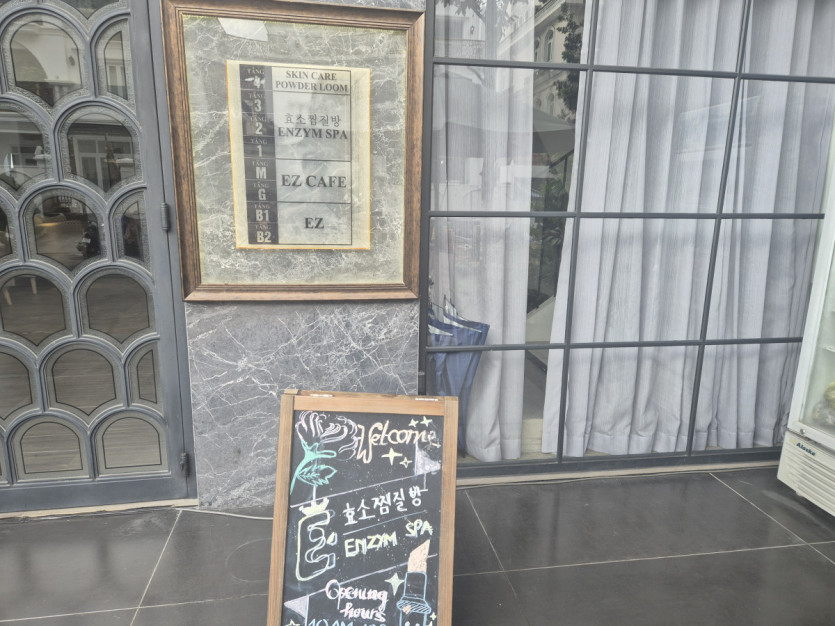 TẦNG 4 SKIN CARE
POWDER LOOM
TẦNG 3
TẦNG 2 효소찜질방
ENZYM SPA
TẦNG 1
TẦNG M EZ CAFE
TẦNG G
TẦNG B1 EZ
TẦNG B2
Welcome
효소찜질방
ENZYM SPA
Opening
hours
Alaska